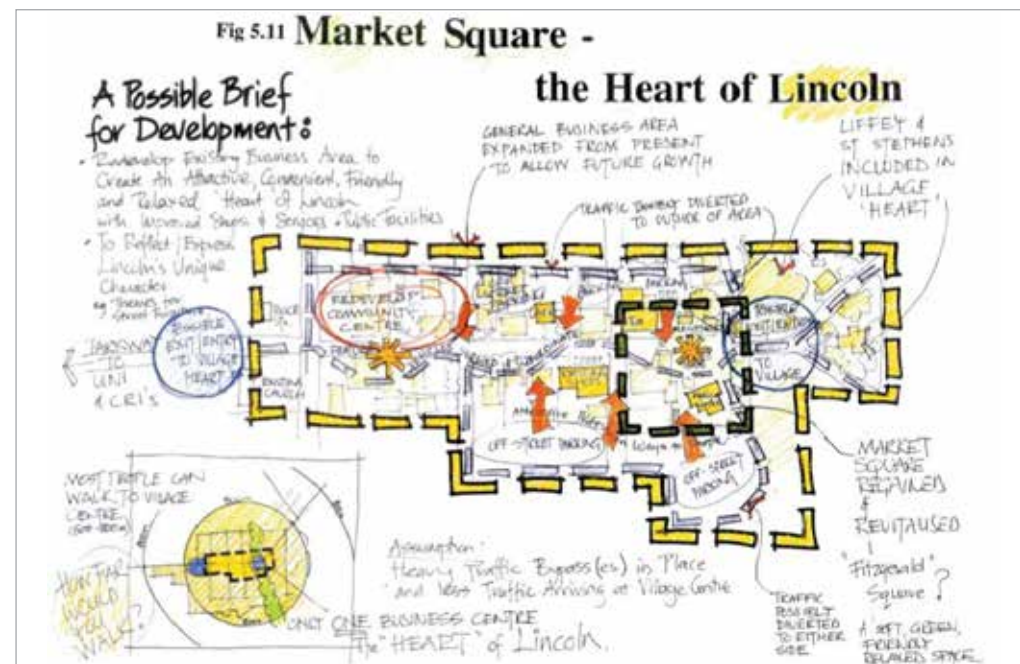 Fig 5.11 Market Square -
the Heart of Lincoln
A Possible Brief
for Development:
• Redevelop Existing Business Area to
Create An Attractive, Convenient, Friendly
and Relaxed "Heart of Lincoln"
with Improved Shops & Services & Public Facilities
• To Reflect / Express
Lincoln's Unique
Character
eg Themes for
GENERAL BUSINESS AREA
EXPANDED FROM PRESENT
TO ALLOW FUTURE GROWTH
LIFFEY &
ST STEPHENS
INCLUDED IN
VILLAGE
'HEART'
TRAFFIC DIVERTED
TO OUTSIDE OF AREA
REDEVELOP
COMMUNITY
CENTRE
POSSIBLE
EXIT/ENTRY
TO VILLAGE
HEART
TO
UNI
& CRI'S
EXISTING
CHURCH
POSSIBLE
EXIT/ENTRY
TO
VILLAGE
PARKING
OFF STREET PARKING
OFF-STREET
PARKING
MARKET
SQUARE
REGAINED
&
REVITALISED
"Fitzgerald"
Square?
A SOFT, GREEN,
FRIENDLY
RELAXED SPACE
TRAFFIC
POSSIBLY
DIVERTED
TO EITHER
SIDE
MOST PEOPLE CAN
WALK TO VILLAGE
CENTRE
HOW FAR
WOULD
YOU
WALK?
Assumption:
Heavy Traffic Bypass(es) in Place
and less Traffic Arriving at Village Centre
ONLY ONE BUSINESS CENTRE
The "HEART" of Lincoln.